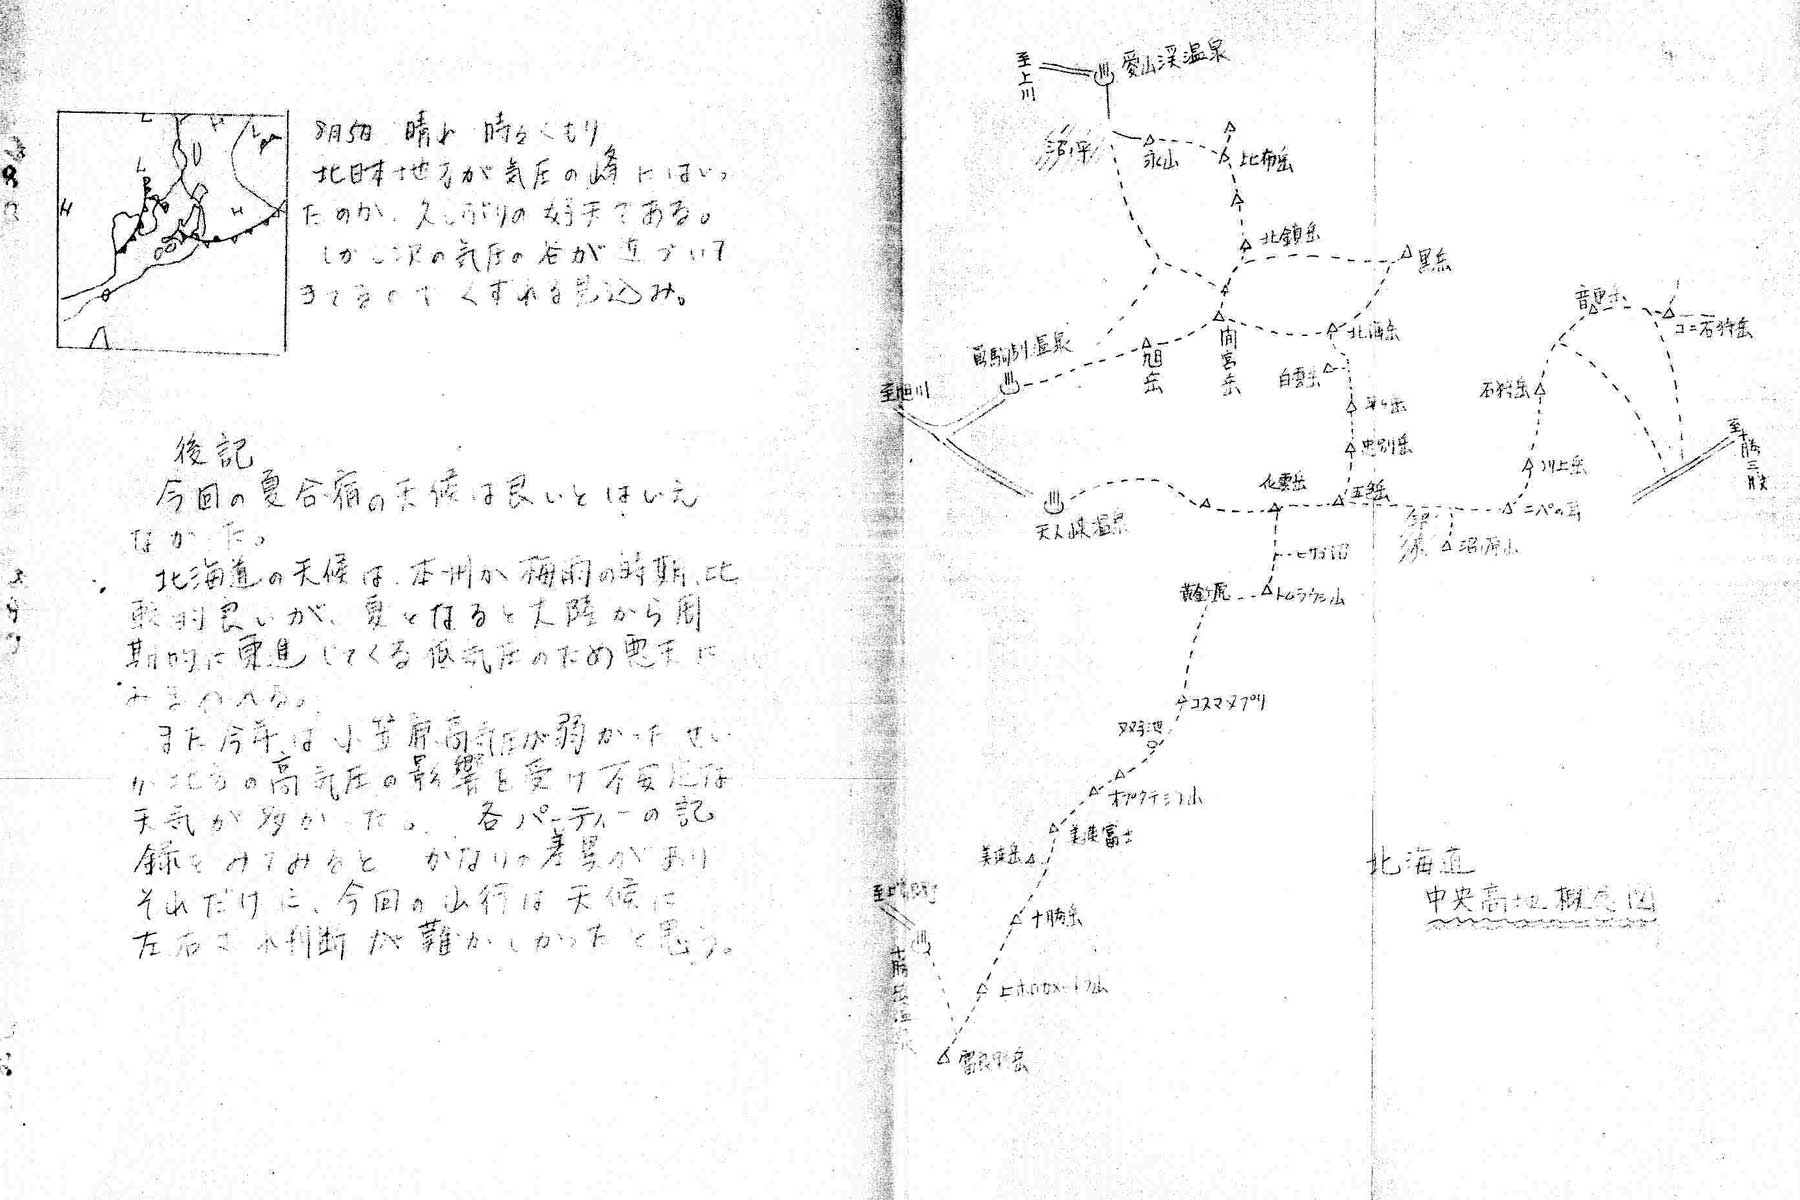 8月5日 晴れ 時々くもり
北日本地方が気圧の峰にはいっ
たのか、久しぶりの好天である。
しかし次の気圧の谷が近づいて
きてるので くずれる見込み。
L
H
L
L
H
H
後記
今回の夏合宿の天候は良いとはいえ
なかった。
北海道の天候は、本州が梅雨の時期、比
較的良いが、夏となると大陸から周
期的に東進してくる低気圧のため悪天に
みまわれる。
また今年は小笠原高気圧が弱かったせい
か北方の高気圧の影響を受け不安定な
天気が多かった。 各パーティーの記
録をみてみると かなりの差異があり
それだけに、今回の山行は天候に
左右され判断が難かしかったと思う。
至上川
愛山渓温泉
沼ノ平
永山
比布岳
北鎮岳
黒岳
間宮岳
旭岳
北海岳
白雲岳
温泉
至旭川
平ヶ岳
忠別岳
五色岳
化雲岳
天人峡温泉
音更岳
ユニ石狩岳
石狩岳
川上岳
至十勝三股
沼ノ原山
ヒサゴ沼
トムラウシ山
黄金ヶ原
コスマヌプリ
双子池
オプタテシケ山
美瑛富士
美瑛岳
十勝岳
上ホロカメットク山
十勝岳温泉
富良野岳
北海道
中央高地概念図